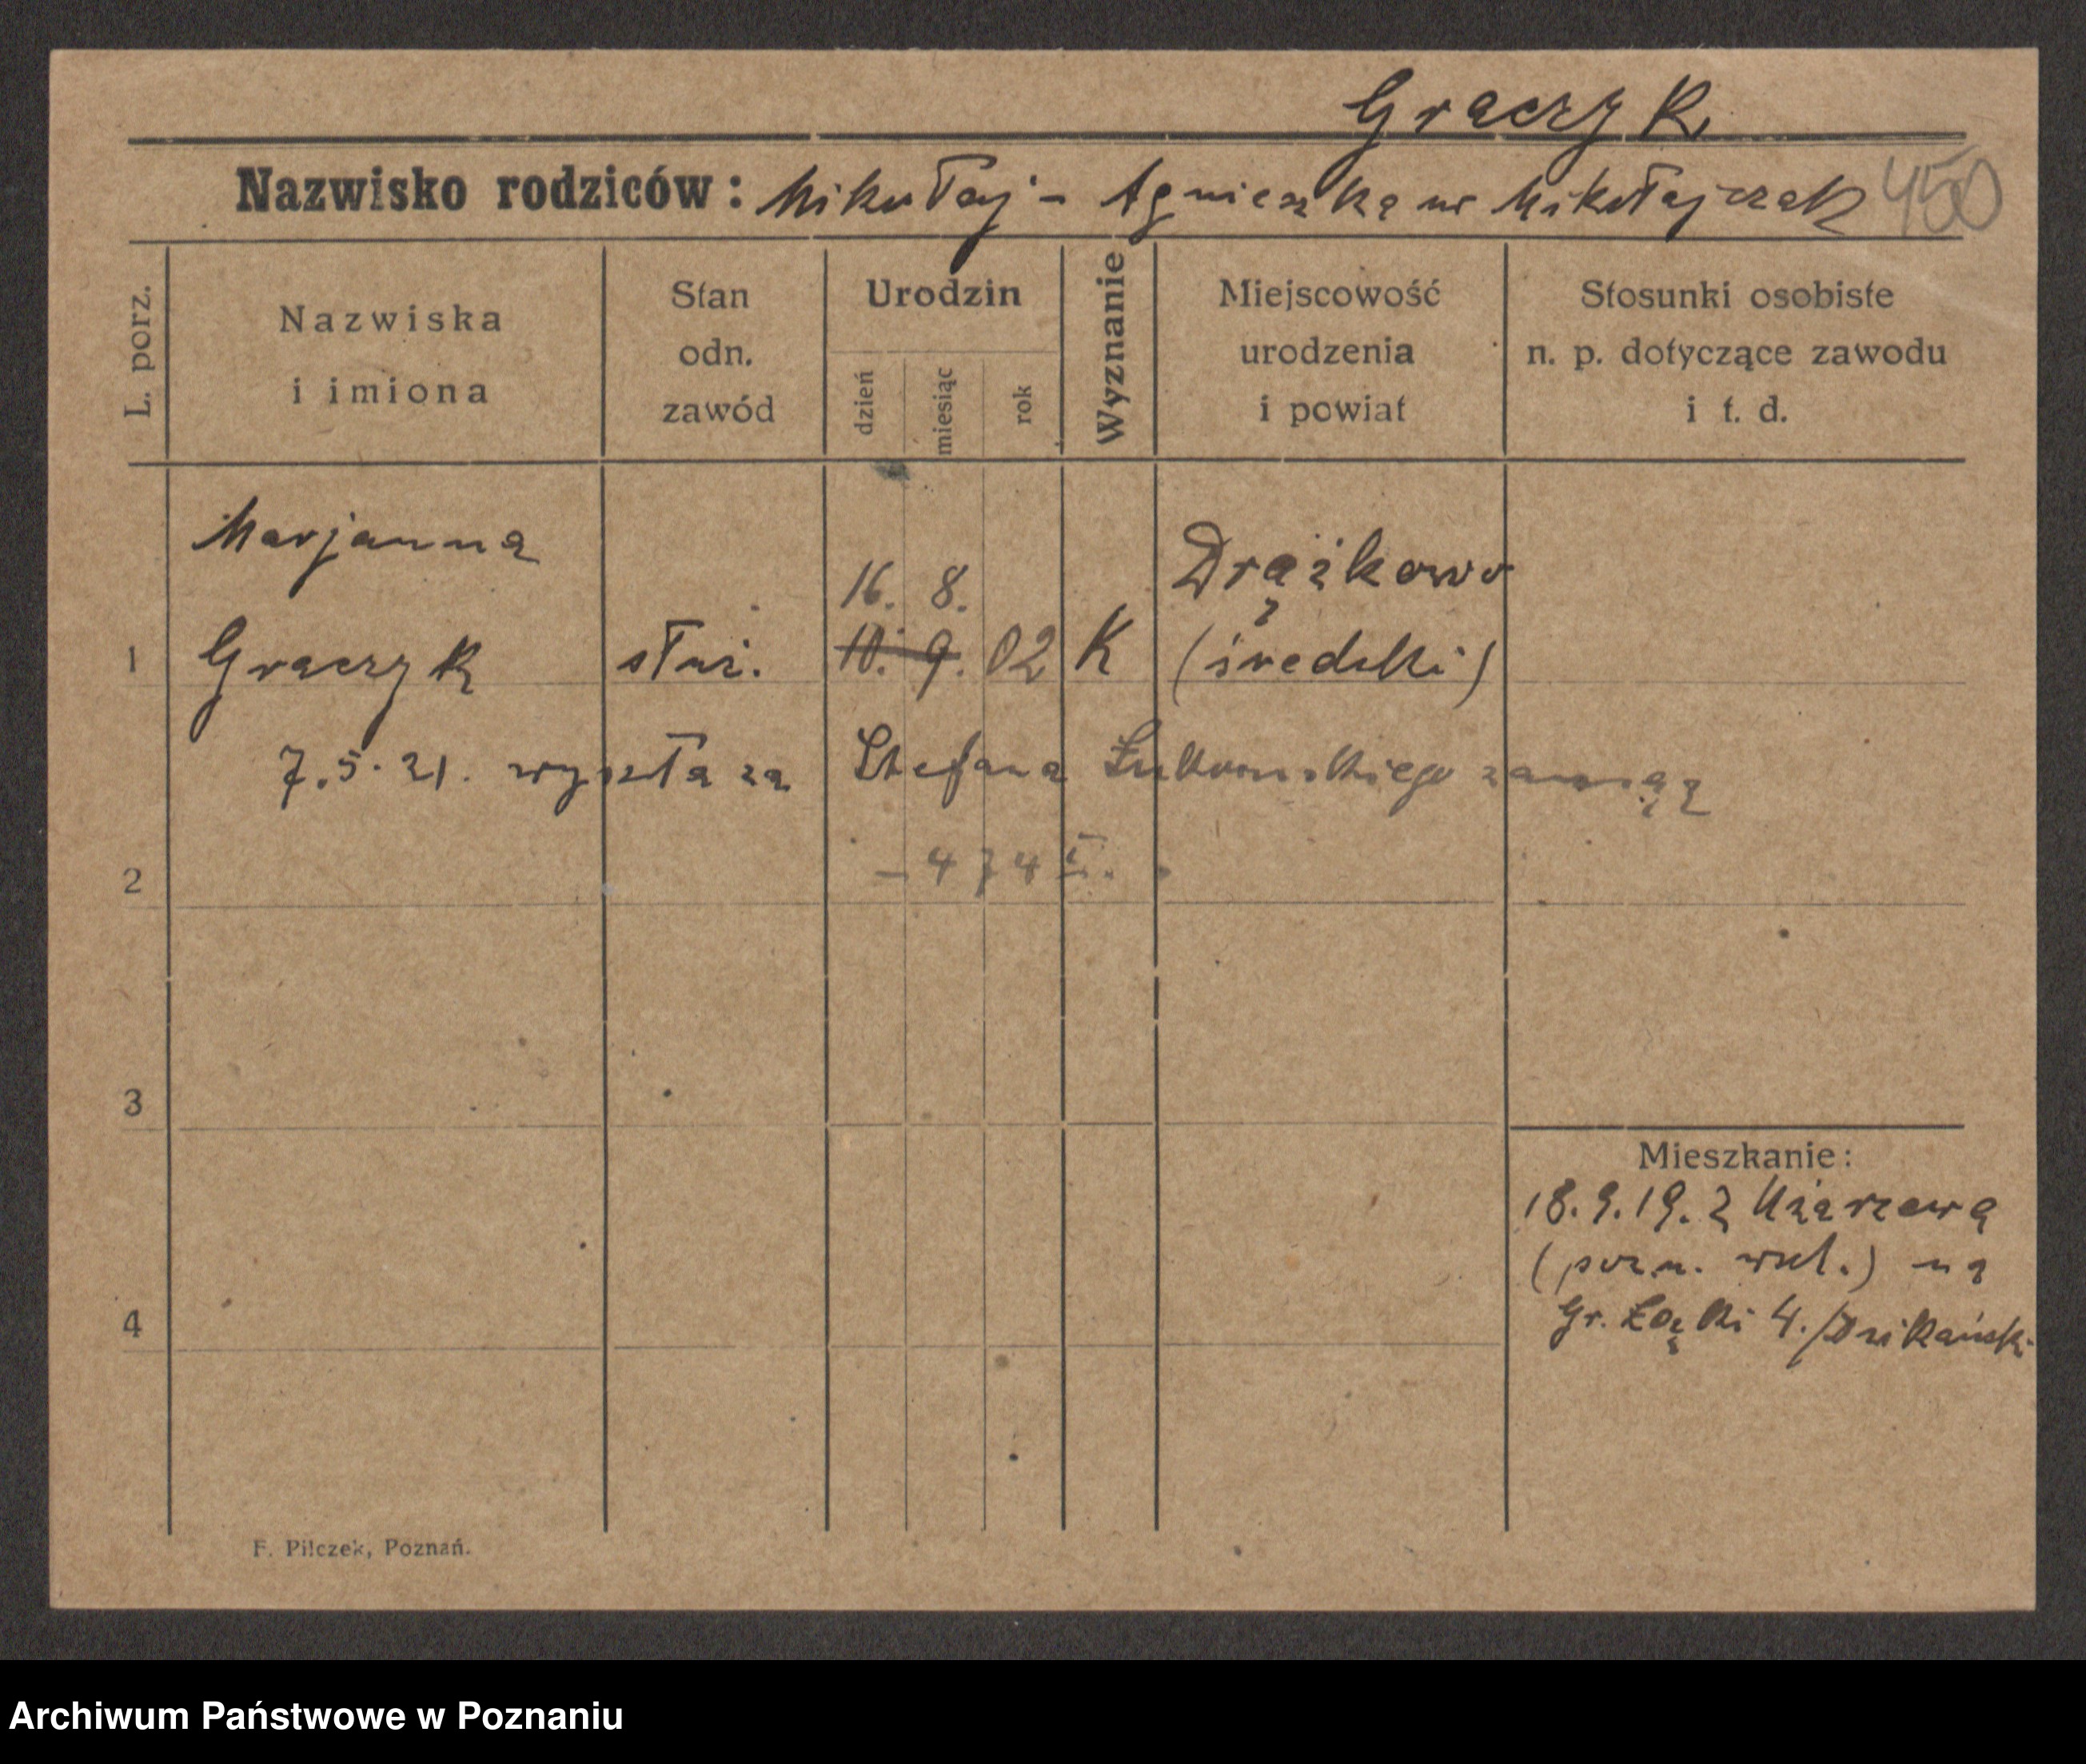 Graczyk
Nazwisko rodziców: Mikołaj - Agnieszka ur Mikołajczak 450
L. porz.
Nazwiska
i imiona
Stan
odn.
zawód
Urodzin
dzień
miesiąc
rok
Wyznanie
Miejscowość
urodzenia
i powiat
Stosunki osobiste
n. p. dotyczące zawodu
i t. d.
Marjanna
16. 8.
Drążkowo
1 Graczyk służ. 10. 9. 02 K (średzki)
7.5.21. wyszła za Stefana Łukomskiego zamąż
- 474
2
3
4
Mieszkanie:
18.9.19. z Uzarzewa
(pozn. wsch.) na
Gr. Łąki 4./Dzikański
F. Pilczek, Poznań.
Archiwum Państwowe w Poznaniu